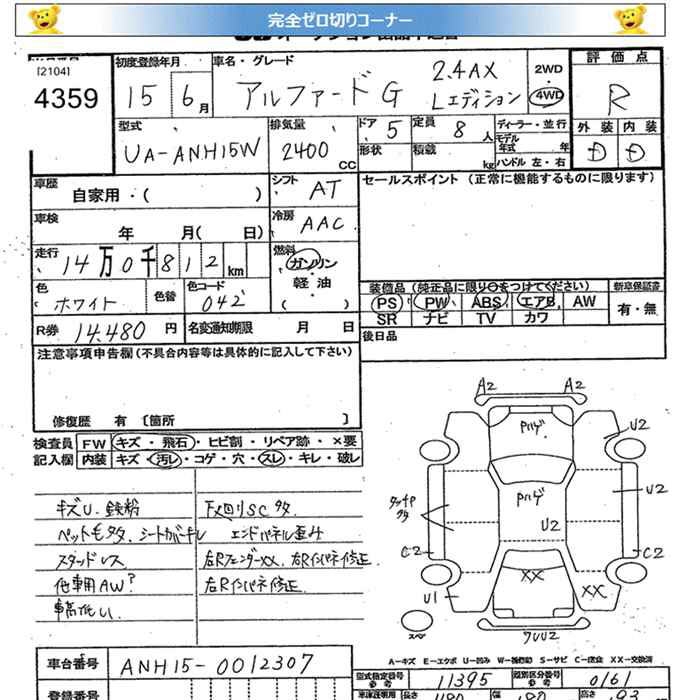 完全ゼロ切りコーナー
[2104]
4359
初度登録年月 車名・グレード
15 6月 アルファードG 2.4AX Lエディション
2WD
4WD
評価点
R
外装 内装
D D
型式 排気量 ドア 定員 ディーラー・並行
UA-ANH15W 2400 CC 5 8人
形状 積載 kg
モデル年式 年
ハンドル 左・右
車歴 自家用・( )
シフト AT
セールスポイント (正常に機能するものに限ります)
車検 年 月( 日)
冷房 AAC
走行 14万0千812km
燃料 ガソリン・軽油・( )
色 ホワイト 色替 色コード 042
装備品 (純正品に限り○をつけてください) 新車保証書
PS PW ABS エアB AW 有・無
SR ナビ TV カワ
R券 14,480円 名変通知期限 月 日
後日品
注意事項申告欄 (不具合内容等は具体的に記入して下さい)
修復歴 有 〔箇所 〕
検査員 FW キズ・飛石・ヒビ割・リペア跡・×要
記入欄 内装 キズ・汚レ・コゲ・穴・スレ・キレ・破レ
キズU.鉄粉 下廻りSC タタ
ペット毛タタ.シートカバーキレ エンドパネル歪み
スタッドレス 右RフェンダーXX.右Rインパネ修正
他車用AW? 左Rインパネ修正
車高低い
A2 A2
Pハゲ
U2
タッチP
タタ
Pハゲ
U2
U2
C2 C2
U1
XX XX
スペア
ワレU2
A=キズ E=エクボ U=凹み W=補修跡 S=サビ C=腐食 XX=交換済
車台番号 ANH15-0012307
型式指定番号 11395 類別区分番号 0161
登録番号